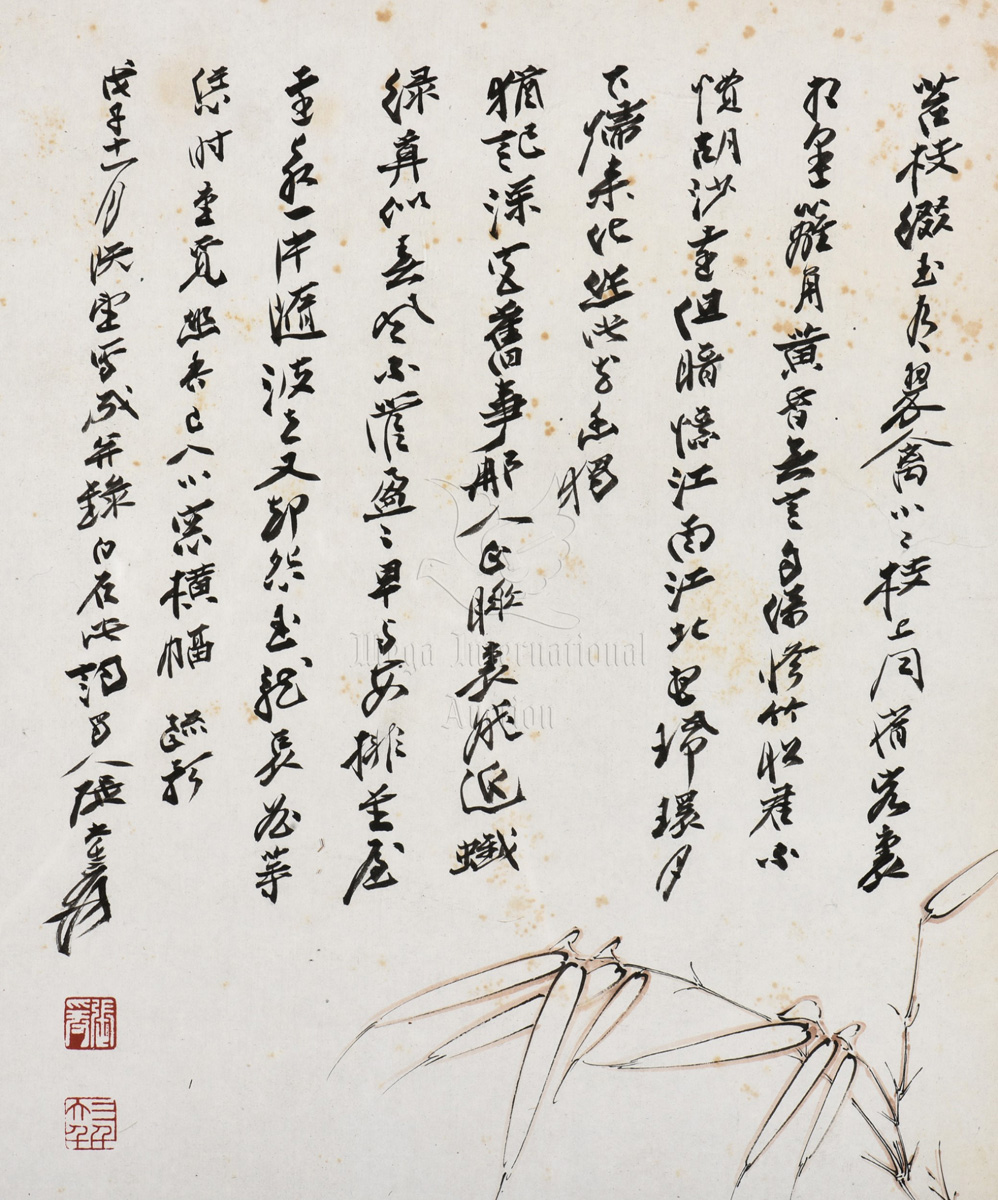 苔枝綴玉有翠禽小〻枝上同宿客裏
相逢籬角黃昏無言自倚修竹昭君不
慣胡沙遠但暗憶江南江北想珮環月
下歸來化作此花幽獨
猶記深宮舊事那人正睡裏飛近蛾
綠莫似春風不管盈〻早与安排金屋
還教一片隨波去又卻怨玉龍哀曲等
恁時重覓幽香已入小窗橫幅 疏影
戊子十一月既望寫成并錄白石此詞蜀人張大千爰
張爰
三千大千
Mega International
Auction